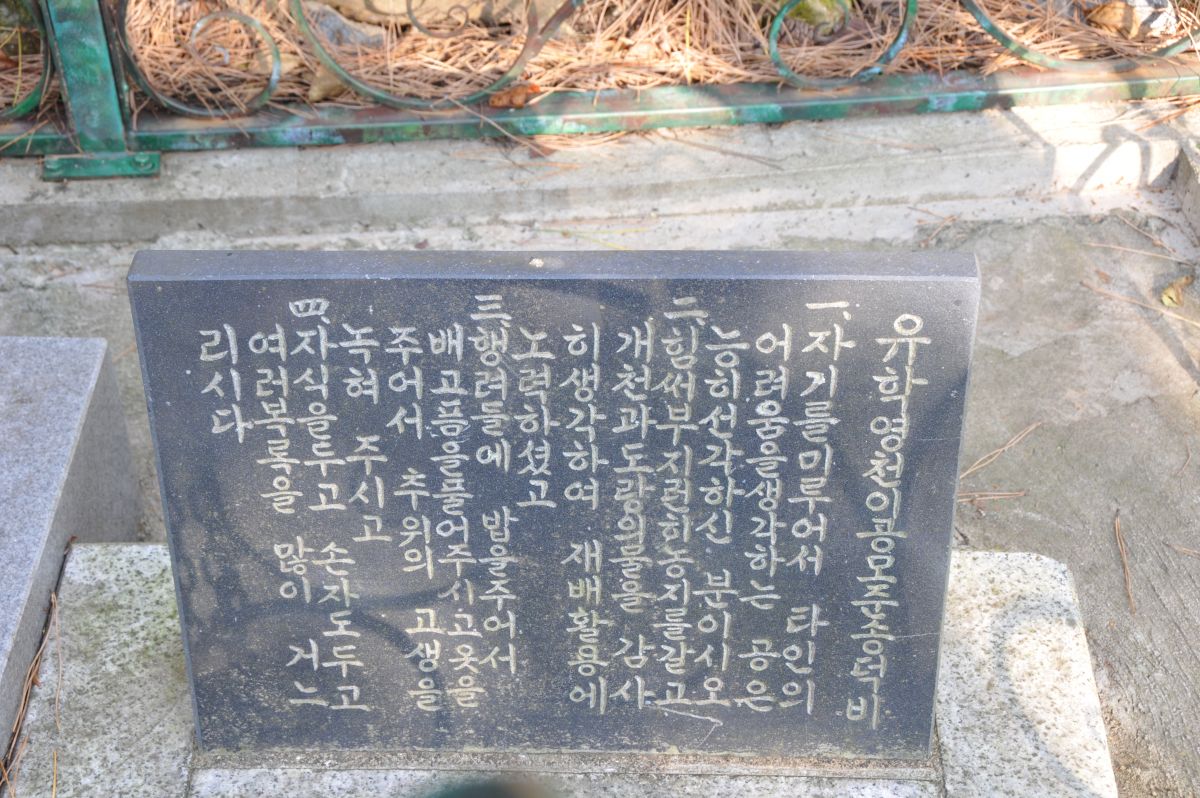 유학영천이공모준송덕비
一、자기를미루어서 타인의
어려움을생각하는 공은
능히선각하신 분이시오
二、힘써부지런히농지를갈고
개천과도랑의물을 감사
히생각하여 재배활용에
노력하셨고
三、행려들에 밥을주어서
배고픔을풀어주시고옷을
주어서 추위의 고생을
녹혀 주시고
四、자식을두고 손자도두고
여러복록을 많이 거느
리시다